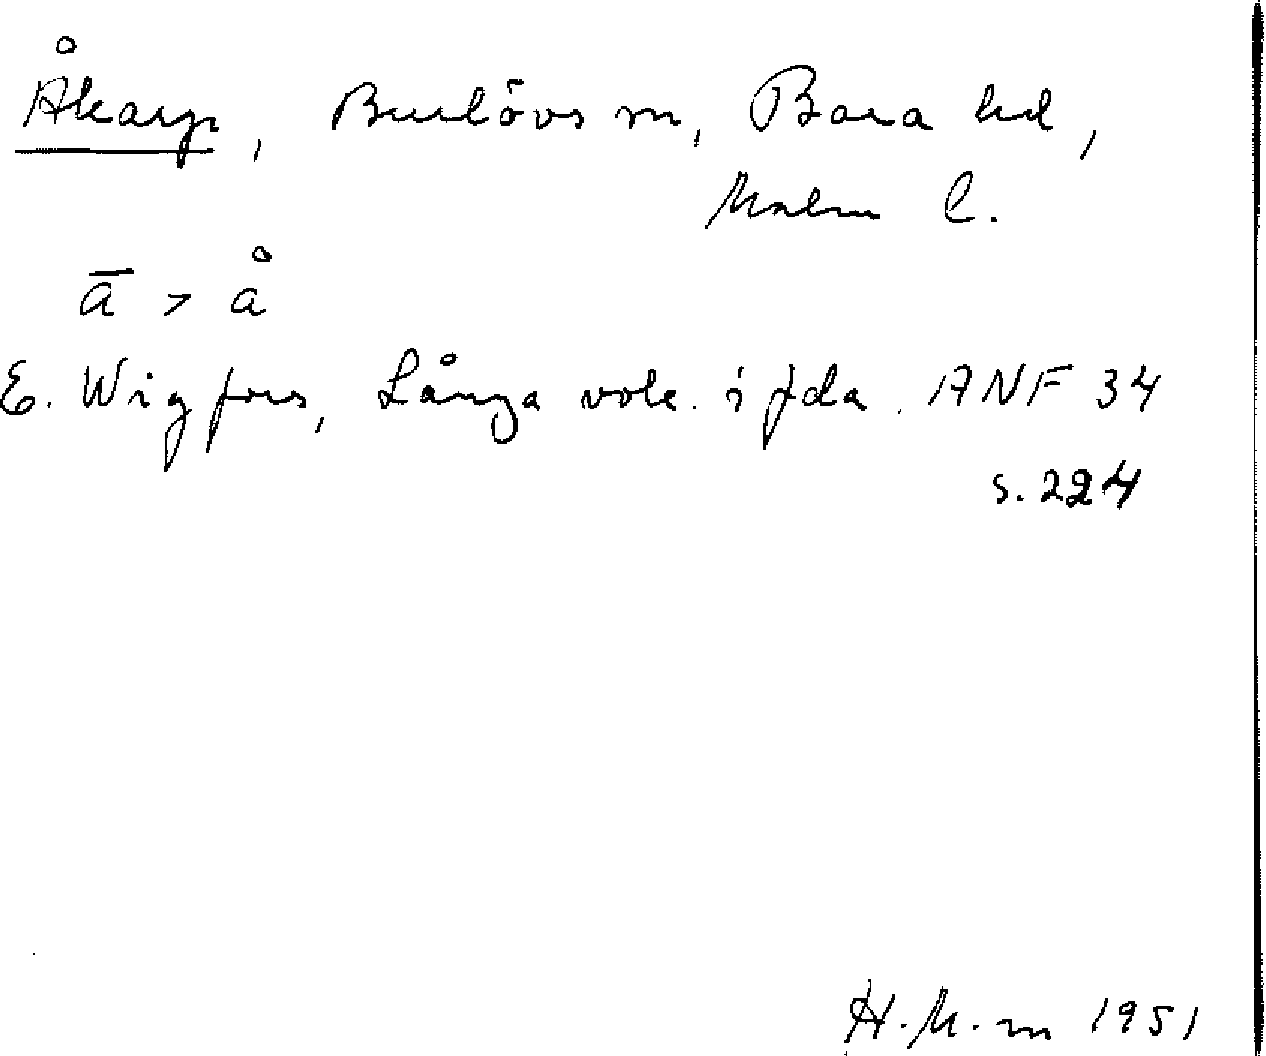 Åkarp, Burlövs sn, Bara hd,
Malm l.
ā > å
E. Wigfors, Långa vok. i fda. ANF 34
s. 224
H. M-m 1951